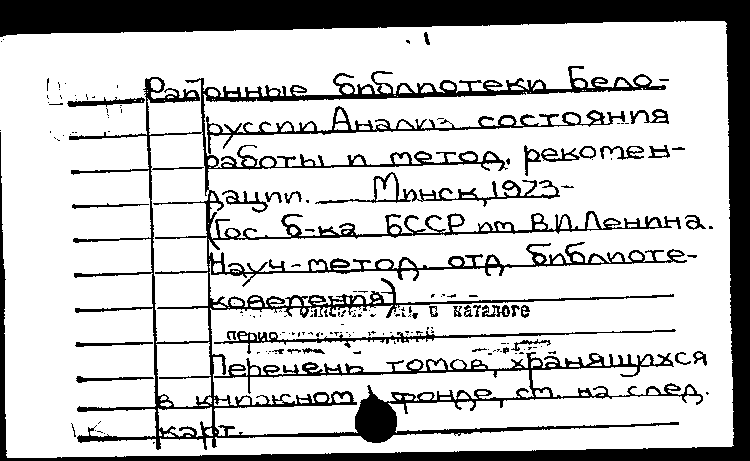 Районные библиотеки Бело-
руссии. Анализ состояния
работы и метод. рекомен-
дации. — Минск, 1973-
(Гос. б-ка БССР им. В.И. Ленина.
Науч.-метод. отд. библиоте-
коведения)
в каталоге
Перечень томов, хранящихся
в книжном фонде, см. на след.
карт.